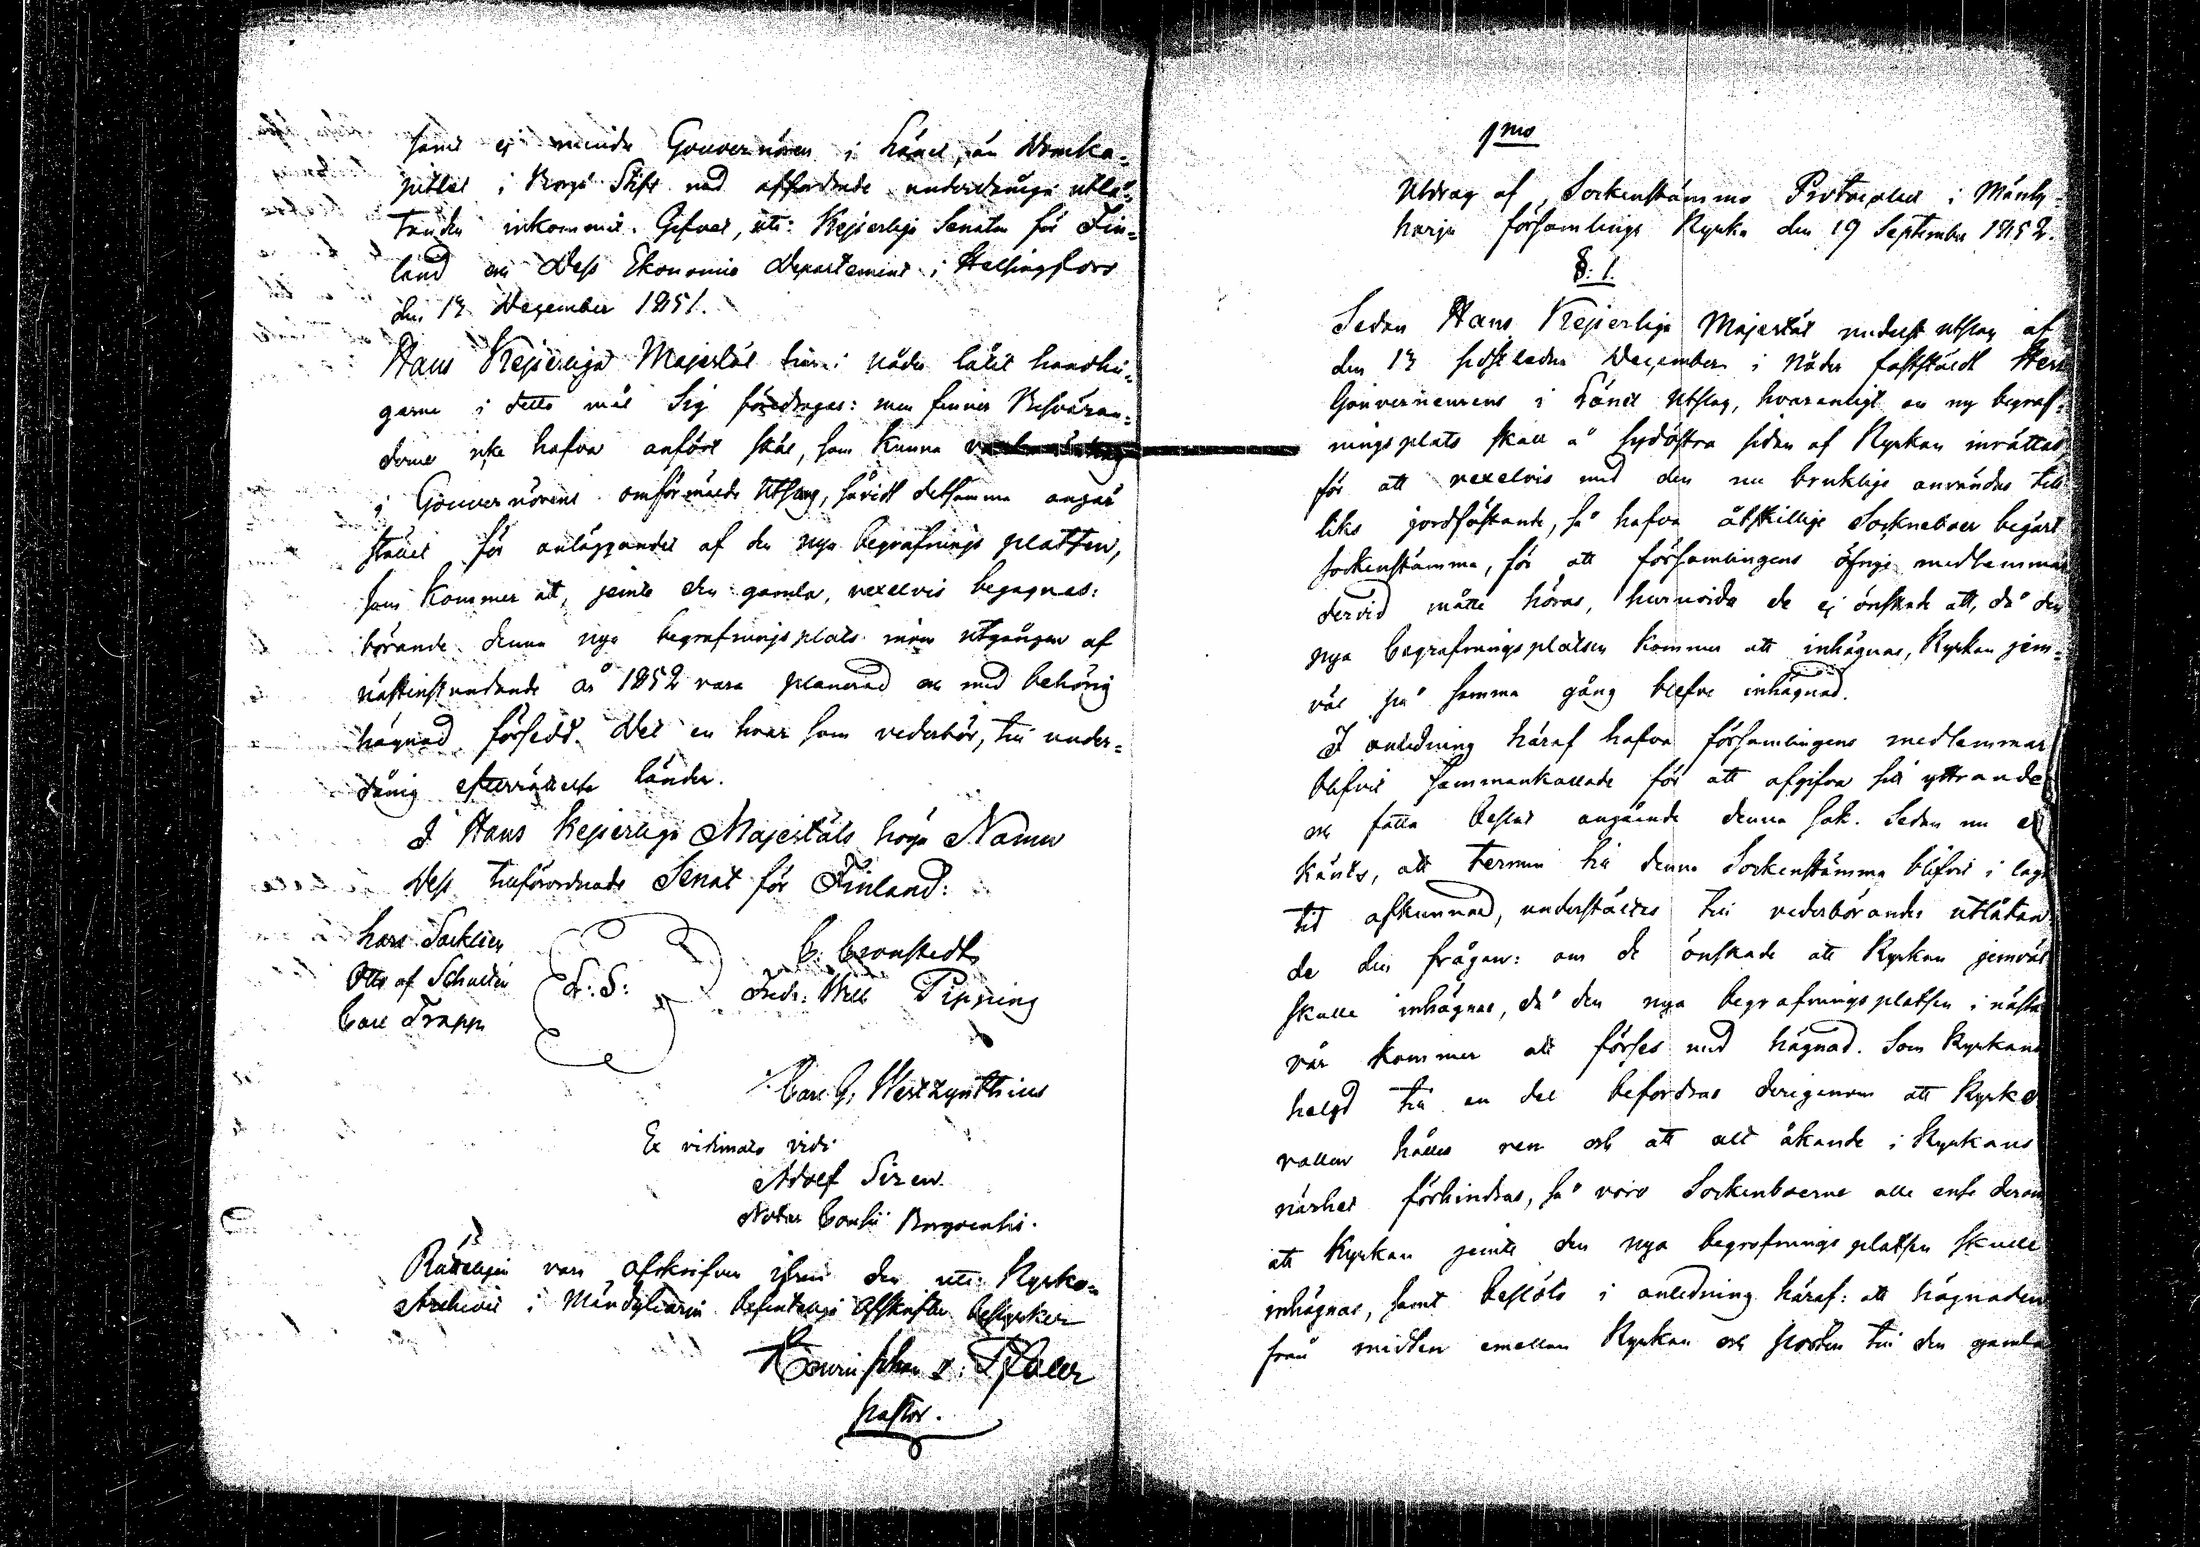 samt ej mindre Gouvernören i Länet, än Domka-
pitlet i Borgå Stift med affordrade underdåniga utlå-
tanden inkommit. Gifvet, uti Kejserliga Senaten för Fin-
land och Dess Ekonomie Departement i Helsingfors
den 17 December 1851.
Hans Kejserliga Majestät har i nåder låtit handlin-
garne i detta mål Sig föredragas: men finner Besväran-
derne icke hafva anfört skäl, som kunna
i Gouvernörens omförmälde Utslag, såvidt detsamma angår
stället för anläggandet af den nya begrafnings platsen,
som kommer at, jemte den gamla, vexelvis begagnas:
börande denna nya begrafningsplats inom utgången af
nästinstundande år 1852 vara planerad och med behörig
hägnad försedd. Det en hvar som vederbör, till under-
dånig efterrättelse länder.
I Hans Kejserliga Majestäts höga Namn
Dess tillförordnade Senat för Finland:
Lars Sacklén
C. Cronstedt
Otto af Schultén
L.S:
Fredr: Will Pipping
Carl Trapp
Carl G. Westzynthius
Ex vidimato vidi
Adolf Siren
Notar Consii Borgoensis.
Rätteligen vara afskrifven ifrån den uti Kyrko-
Archivet i Mäntyharju befinteliga Afskriften bestyrker
pastor.
1mo
Utdrag af Sockenstämmo Protocollet i Mänty-
harju församlings Kyrka den 19 September 1852.
§. 1.
Sedan Hans Kejserliga Majestät medelst utslag af
den 17 sistledne December i Nåder fastställt Herr
Gouverneurens i Länet Utslag, hvarenligt en ny begraf-
ningsplats skall å sydöstra sidan af Kyrkan inrättas,
för att vexelvis med den nu brukliga användas till
liks jordfästande, så hafva åtskillige Sockneboer begärt
sockenstämma, för att församlingens öfriga medlemmar
dervid måtte höras, huruvida de ej önskade att, då den
nya begrafningsplatsen kommer att inhägnas, Kyrkan jem-
väl på samma gång blefve inhägnad.
I anledning häraf hafva församlingens medlemmar
blifvit sammankallade för att afgifva sitt yttrande
och fatta beslut angående denna sak. Sedan nu er
känts, att termin till denna Sockenstämma blifvit i laga
tid afkunnad, underställtes till vederbörandes utlåtan
de den frågan: om de önskade att Kyrkan jemväl
skulle inhägnas, då den nya begrafningsplatsen i nästa
vår kommer att förses med hägnad. Som Kyrkans
helgd till en del befordras derigenom att Kyrko
vallen hålles ren och att allt åkande i Kyrkans
närhet förhindras, så voro Sockenboerne alle ense derom
att Kyrkan jemte den nya begrafnings platsen skulle
inhägnas, samt beslöts i anledning häraf: att hägnaden
från midten emellan Kyrkan och porten till den gamla